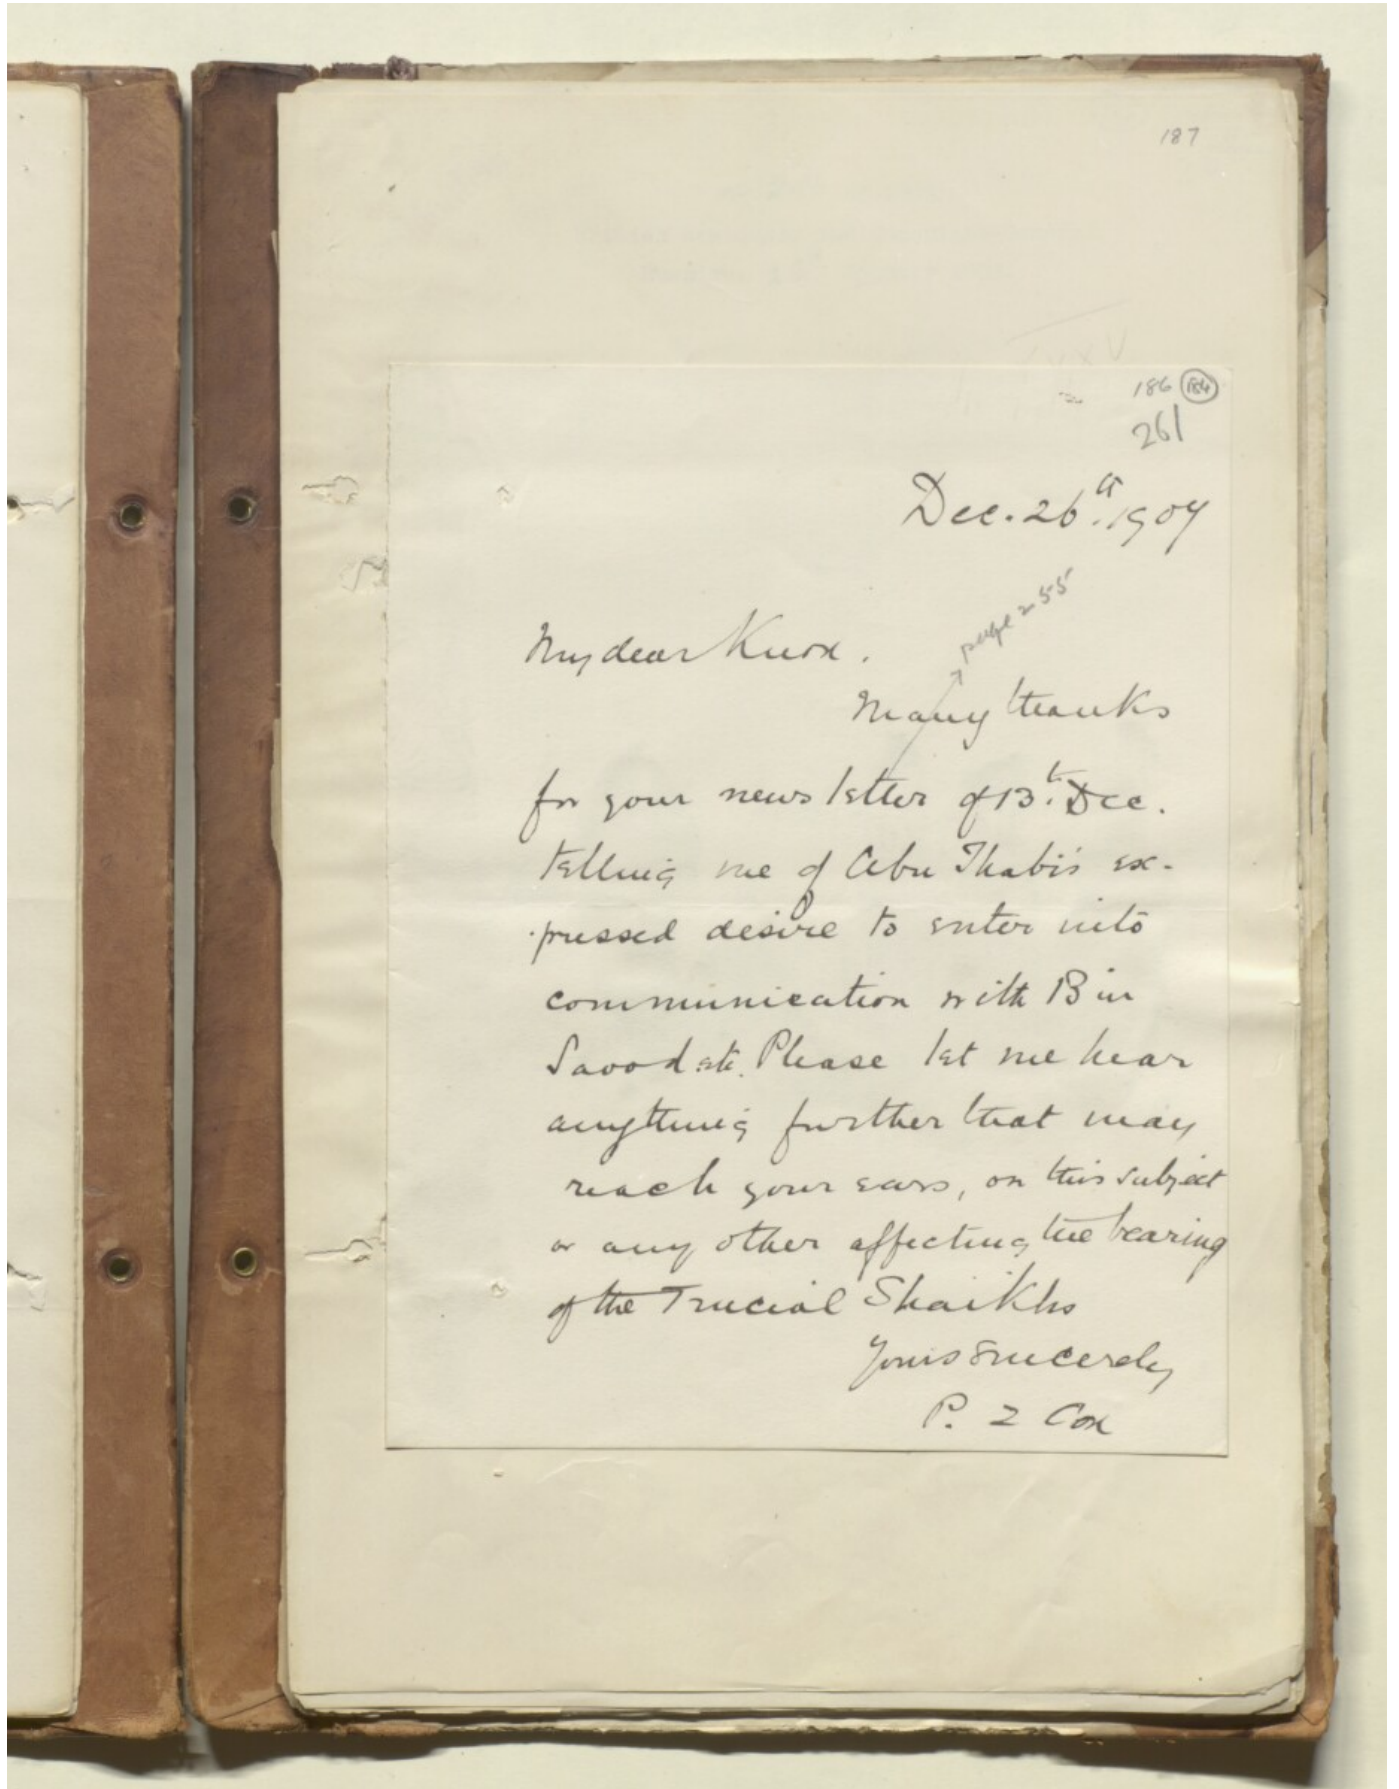 187
186 184
261
Dec. 26th. 1907
page 255
My dear Knox.
Many thanks
for your news letter of 13th. Dec.
telling me of Abu Thabi's ex-
-pressed desire to enter into
communication with Bin
Saood etc. Please let me hear
anything further that may
reach your ears, on this subject
or any other affecting the bearing
of the Trucial Shaikhs
Yours sincerely
P. Z Cox